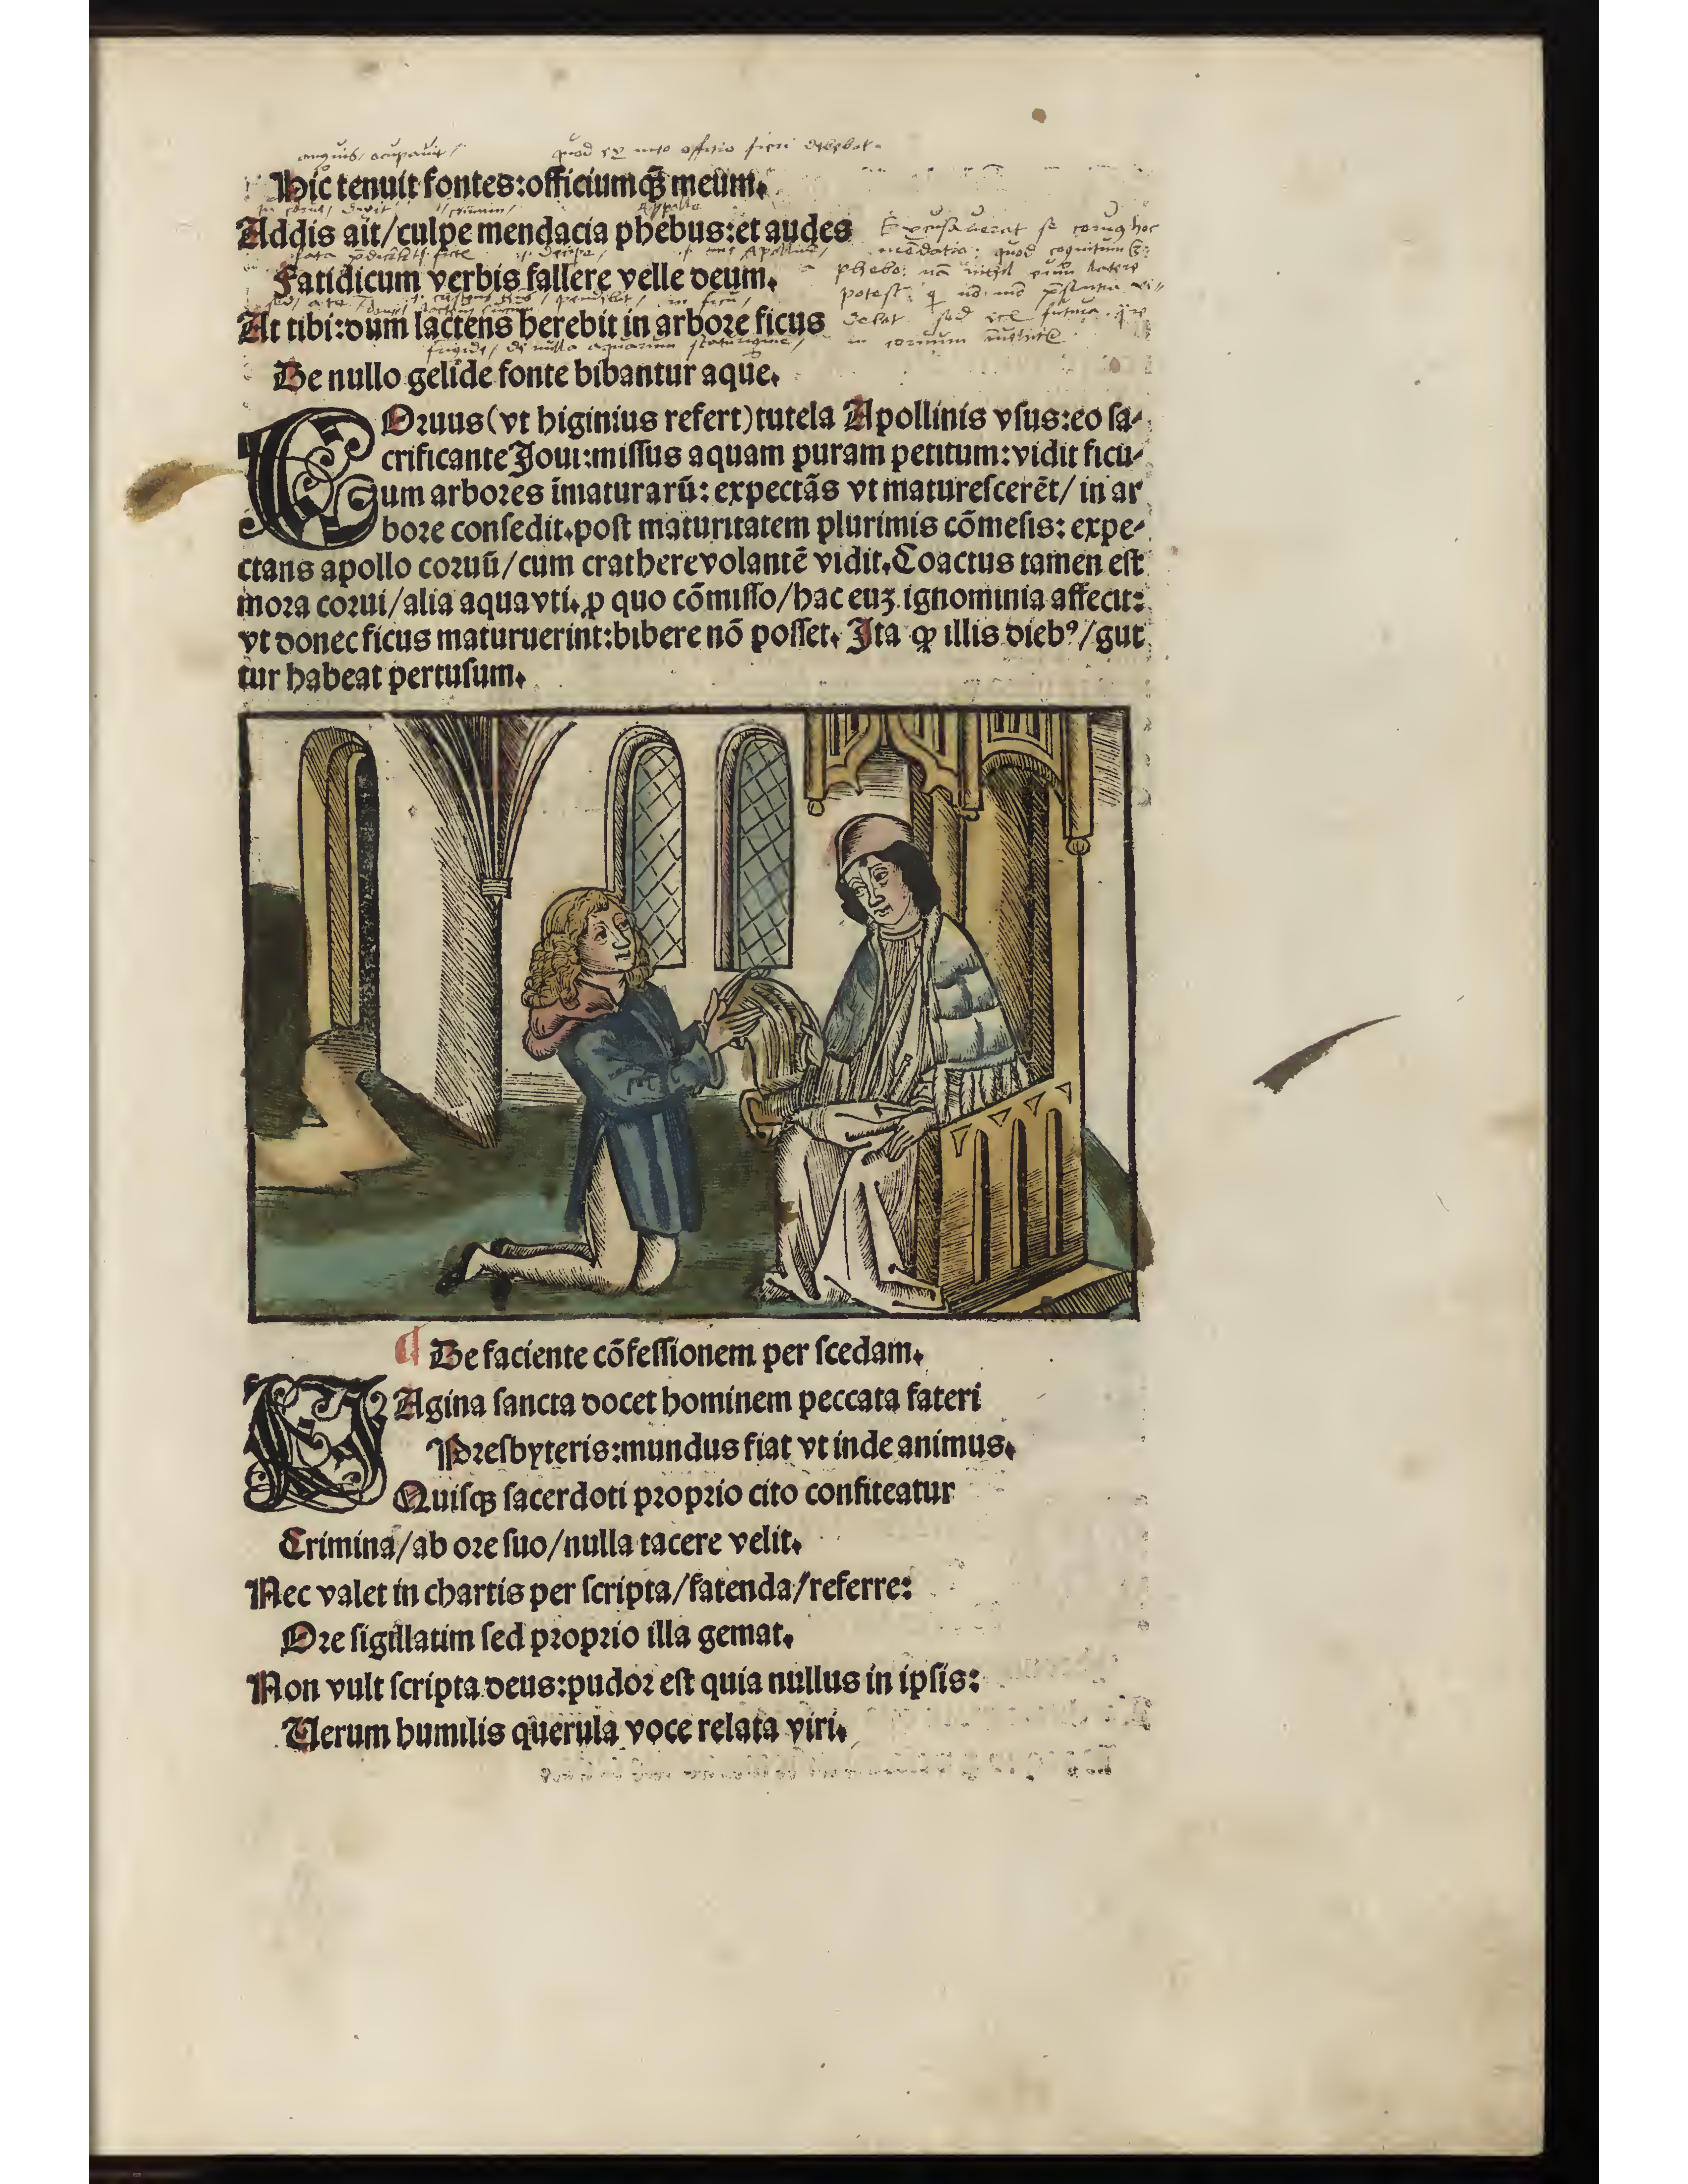 anguis, ocupauit / quod ex meo offitio fieri debebat.
Hic tenuit fontes:officiumqꝫ meum.
Appollo
Addis ait/culpe mendacia phebus:et audes
Excusauerat se coruus hoc
mendatio: quod cognitum
Fatidicum verbis fallere velle deum.
phebo: latere
potest:
At tibi:dum lactens herebit in arbore ficus
debat sed futura
frigide, de nulla aquarum scaturigine,
De nullo gelide fonte bibantur aque.
COruus(vt higinius refert)tutela Apollinis vſus:eo ſa-
crificante Joui:miſſus aquam puram petitum:vidit ficu-
um arbores ĩmaturarũ: expectãs vt matureſcerẽt/ in ar
bore conſedit.poſt maturitatem plurimis cõmeſis: expe-
ctans apollo coruũ/cum crathere volantẽ vidit.Coactus tamen eſt
mora corui/alia aqua vti.ꝓ quo cõmiſſo/hac euꝫ ignominia affecit:
vt donec ficus maturuerint:bibere nõ poſſet. Ita ꝙ illis diebꝰ/gut
tur habeat pertuſum.
¶ De faciente cõfeſſionem per ſcedam.
PAgina ſancta docet hominem peccata fateri
Presbyteris:mundus fiat vt inde animus.
Quiſqꝫ ſacerdoti proprio cito confiteatur
Crimina/ab ore ſuo/nulla tacere velit.
Nec valet in chartis per ſcripta/fatenda/referre:
Ore ſigillatim ſed proprio illa gemat.
Non vult ſcripta deus:pudor eſt quia nullus in ipſis:
Uerum humilis querula voce relata viri.